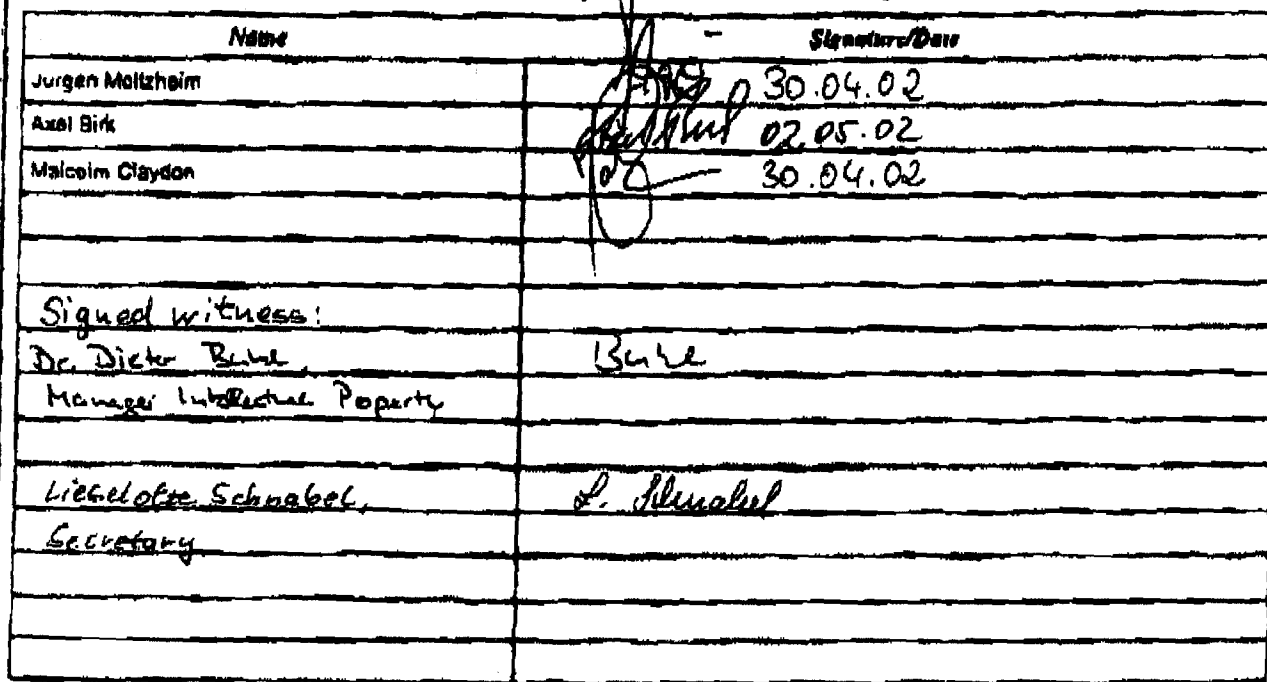 Name Signature/Date
Jurgen Moltzheim 30.04.02
Axel Birk 02.05.02
Malcolm Claydon 30.04.02
Signed witness:
Dr. Dieter
Manager Intellectual Poperty
Lieselotte Schnabel, L. Schnabel
Secretary